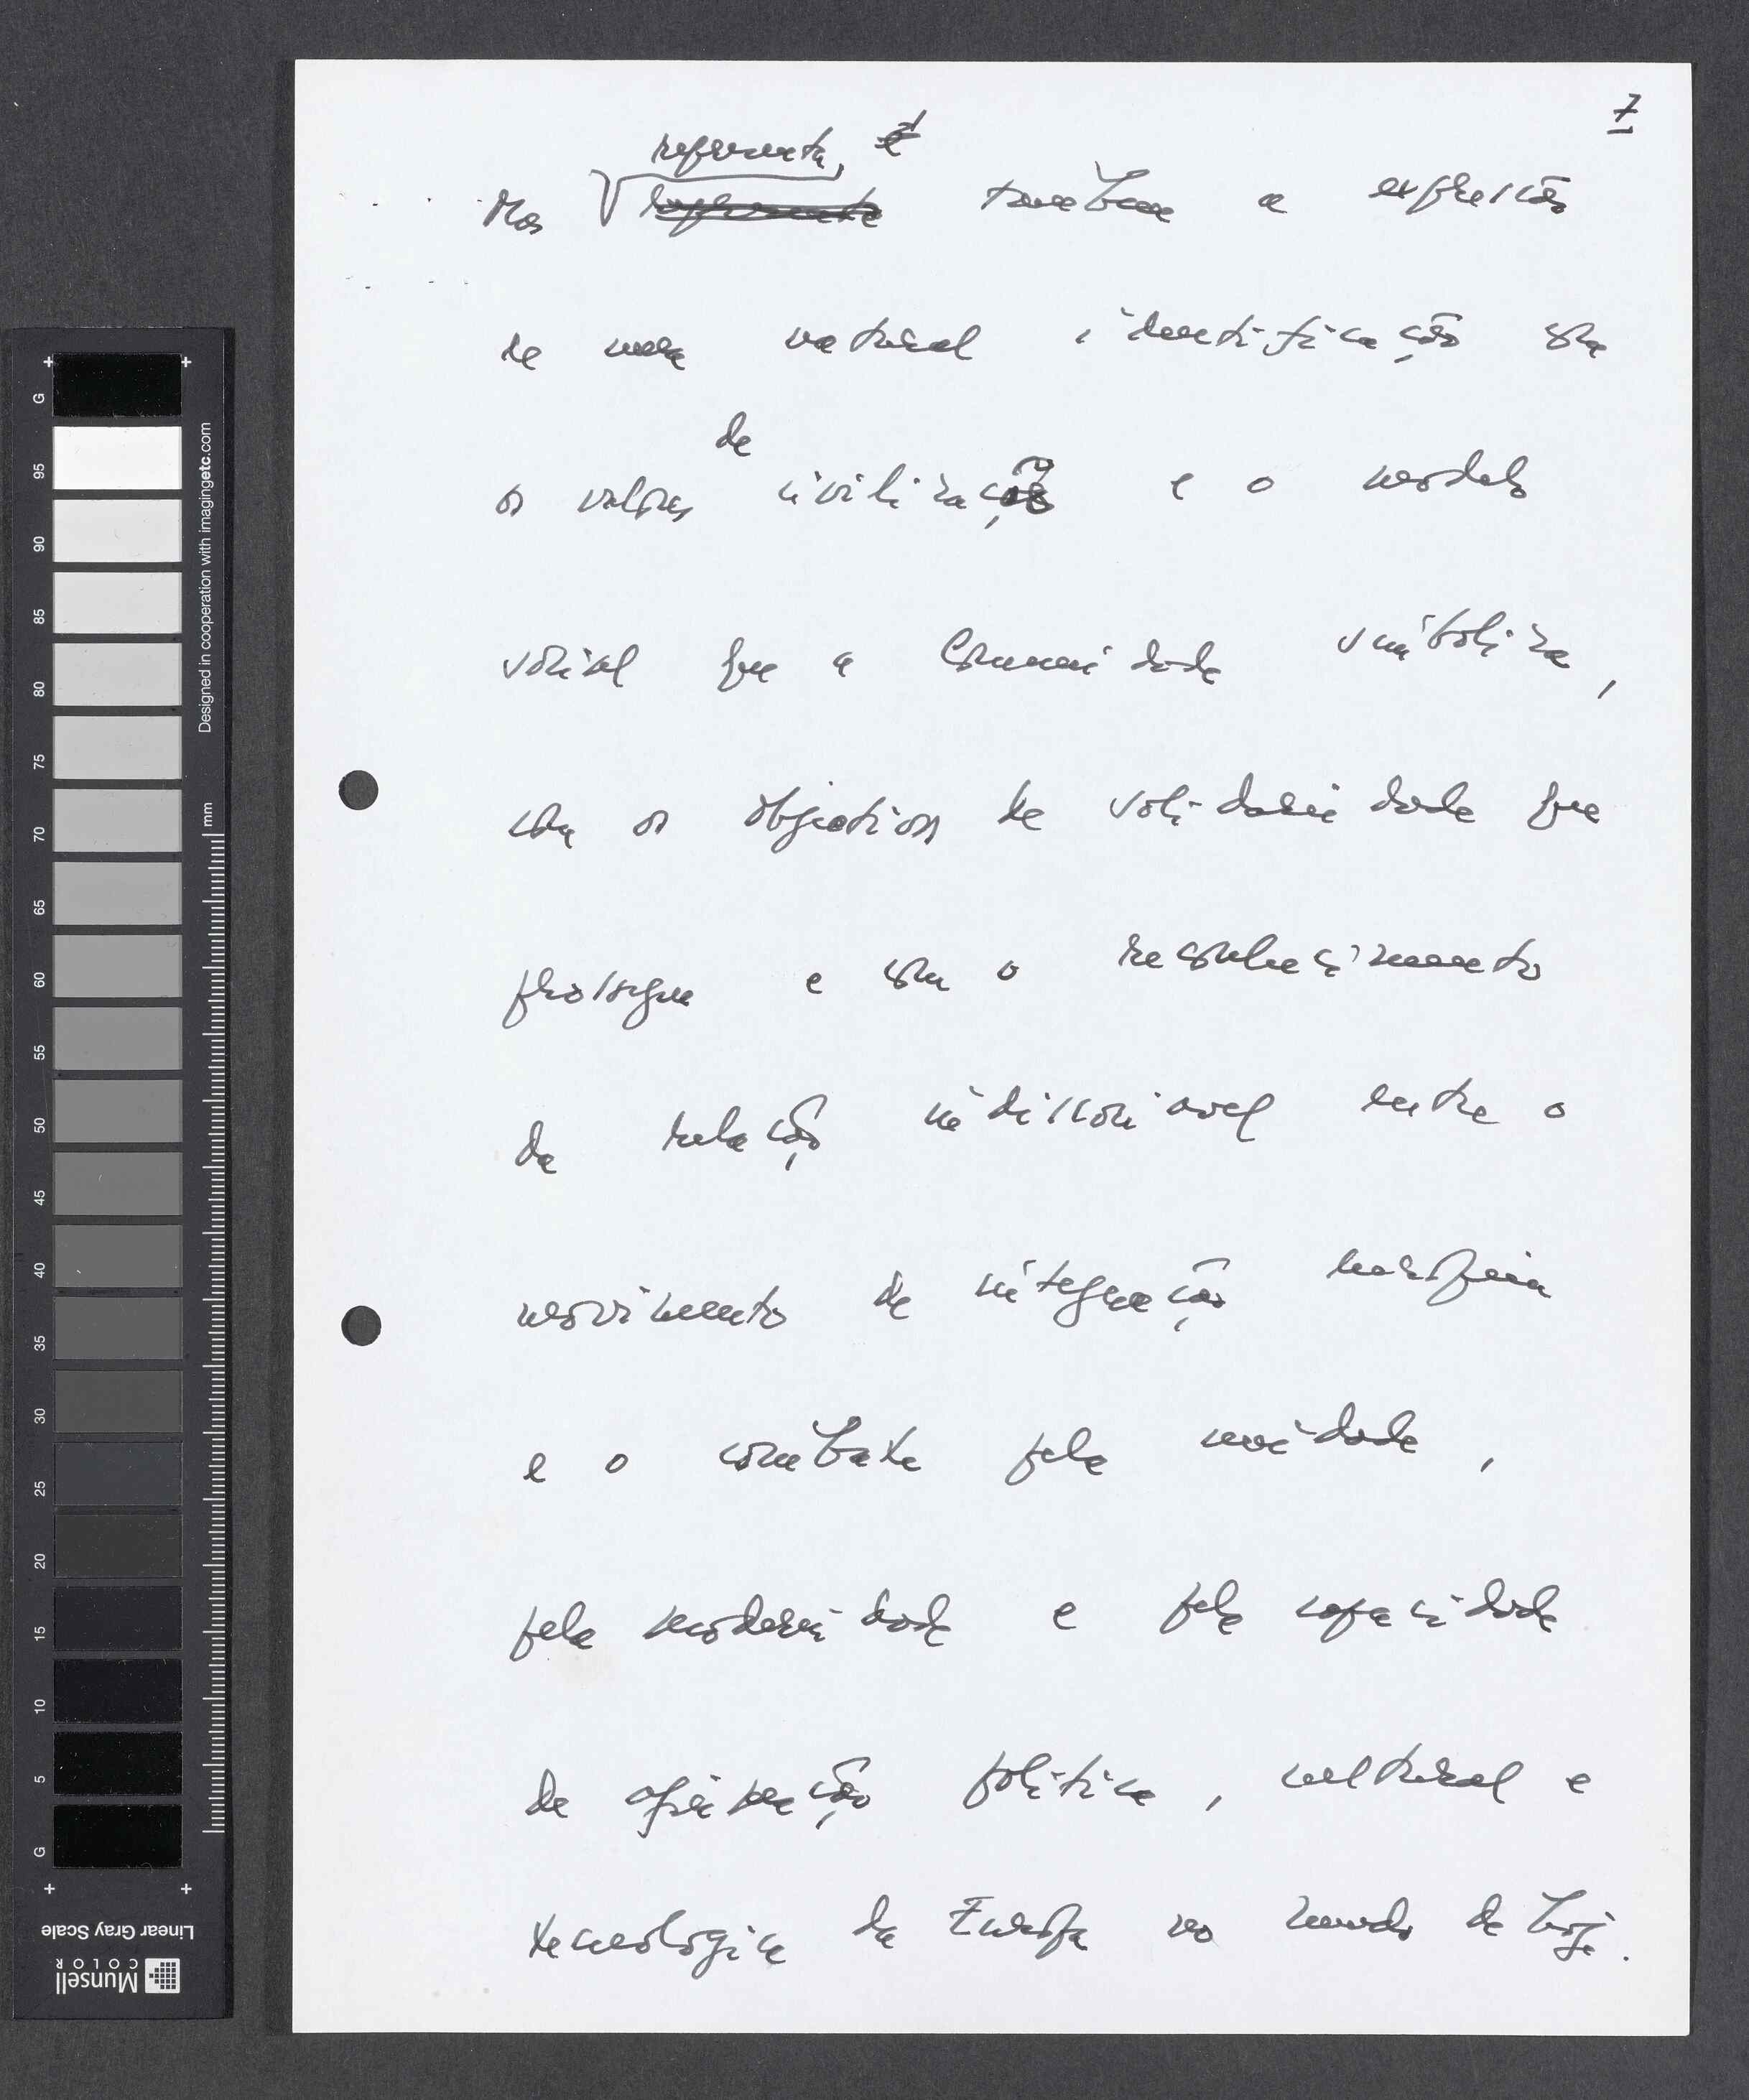 7
representa,
Mas representa também a expressão
de uma natural identificação com
de
os valores civilização e o modelo
social que a Comunidade simboliza,
com os objectivos de solidariedade que
prossegue e com o reconhecimento
da relação indissociavel entre o
movimento de integração europeia
e o combate pela unidade,
pela modernidade e pela capacidade
de afirmação politica, cultural e
tecnologica da Europa no mundo de hoje.
G
95
90
85
80
75
70
65
60
55
50
45
40
35
30
25
20
15
10
5
G
mm
Designed in cooperation with imagingetc.com
Linear Gray Scale
Munsell
COLOR